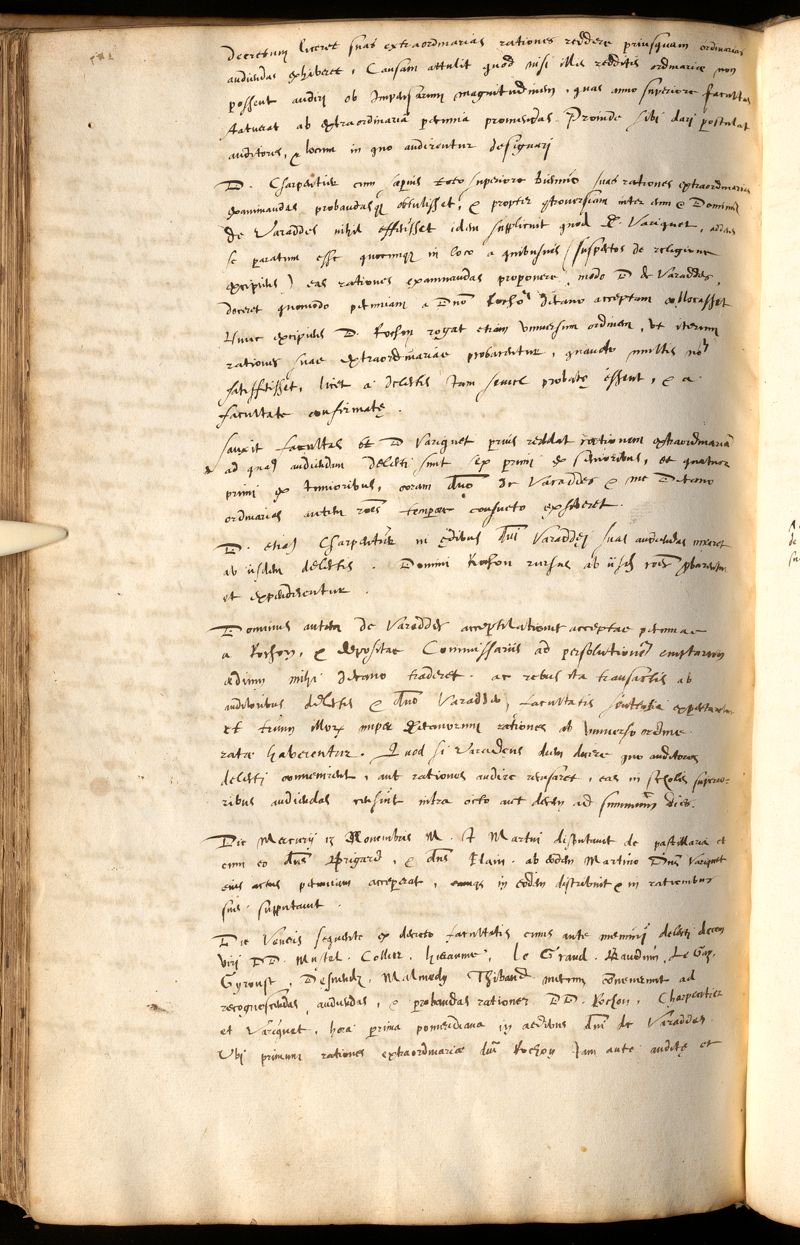 decretum liceret suas extraordinarias rationes reddere priusquam ordinarias
audiendas exhiberet, Causam attulit quod nisi illis redditis ordinariae non
possent audiri ob Impensarum magnitudinem, quas anno superiore facultas
statuerat ab extraordinaria pecunia promendas. Proinde sibi dari postulat
auditores, & locum in quo audirentur designari
D. Charpentier cum saepius toto superiore biennio suas rationes extraordinarias
examinandas probandasque obtulisset, & propter controversiam inter eum & Dominum
de Varaddes nihil effecisset idem supplicuit quod D. Variquet, addens
se paratum esse quocumque in loco a quibusvis (suspectos de religione
excipiens) eas rationes examinandas proponere, modo D de Varaddes,
doceret quomodo pecuniam a Dno Rochon decano acceptam collocasset
Hunc excipiens D. Rochon rogat etiam universum ordinem, ut iterum
rationes suae extraordinariae probarentur, quando multis non
satisfecisset, licet a delectis Jam semel probatę essent, & a
facultate confirmatę.
Sanxit facultas ut D Variquet prius reddat rationem extraordinariam
ad quam audiendam delecti sint sex primi ex senioribus, et quatuor
primi ex Junioribus, coram dno de Varaddes & me Decano
ordinarias autem rões tempore consueto exhiberet.
D. etiam Charpentier in ędibus dni Varaddęi suas audiendas
ab iisdem delectis. Domini Rochon rursus ab iisdem
et expenderentur.
Dominus autem de Varaddes acceptilationem acceptae pecuniae
a Rochon, & depositae Commissariis ad persolutionem emptarum
ędium mihi decano traderet. ac rebus ita transactis ab
auditoribus delectis & dno Varaddeo, facultatis sententia expectaretur
et trium illorum nuper Decanorum rationes ab universo ordine
ratae haberentur. Quod si Varadeus diem dicere quo auditores
delecti convenirent, aut rationes audire recusaret, eas in scholis superio-
ribus audiendas censuit intra octo aut decem ad summum dies.
Die Mercurii 13 Novembris M. J Martin disputavit de pastillaria et
cum eo dnus Brigard, & dnus Hain. ab eodem Martino Dnus Variquet
eius actus pecuniam acceperat, eamque in eodem distribuit & in rationibus
suis supputavit.
Die Veneris sequente ex decreto facultatis cuius ante memini delecti decem
viri DD. Mustel. Collier. heaume, le Grand. Baudouin, Le Gag.
Gyroust, Malmedy Thibaud mecum convenerunt ad
recognoscendas, audiendas, & probandas rationes DD. Rochon, Charpentier
et Variquet, hora prima pomeridiana in aedibus dni de Varaddes.
Ubi primum rationes extraordinariae dni Rochon Jam ante auditę et